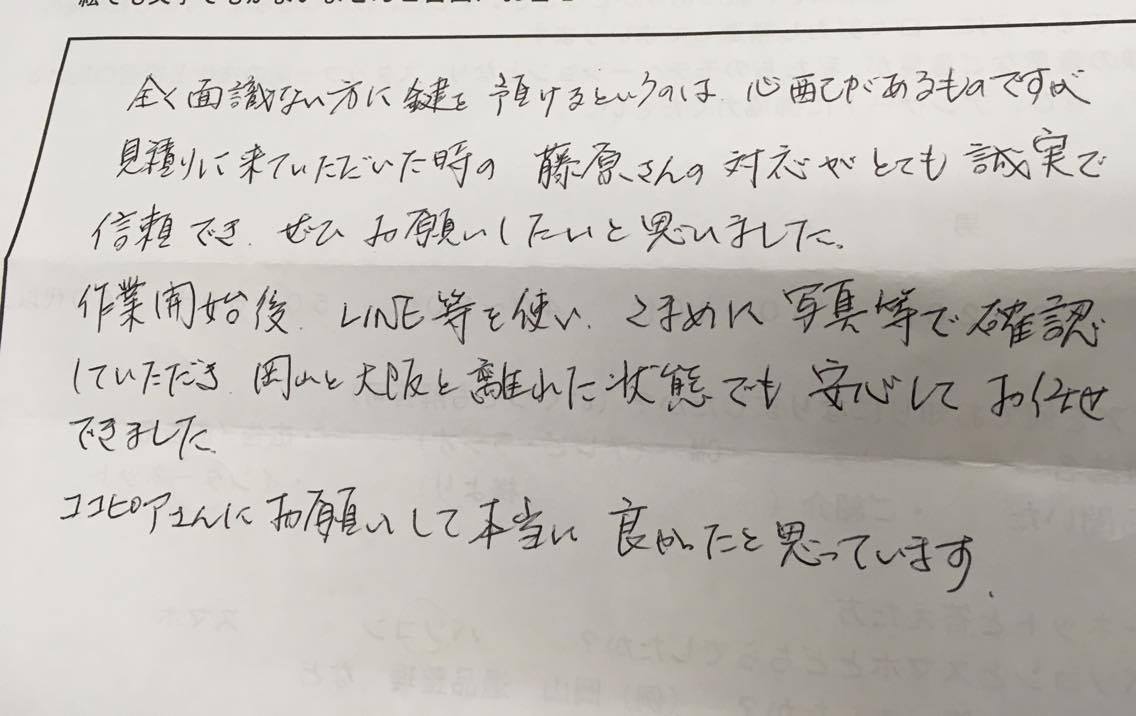 全く面識ない方に鍵を預けるというのは、心配があるものですが
見積りに来ていただいた時の 藤原さんの対応がとても誠実で
信頼でき、ぜひお願いしたいと思いました。
作業開始後、LINE等を使い、こまめに写真等で確認
していただき、岡山と大阪と離れた状態でも安心してお任せ
できました。
ココピアさんにお願いして本当に良かったと思っています。